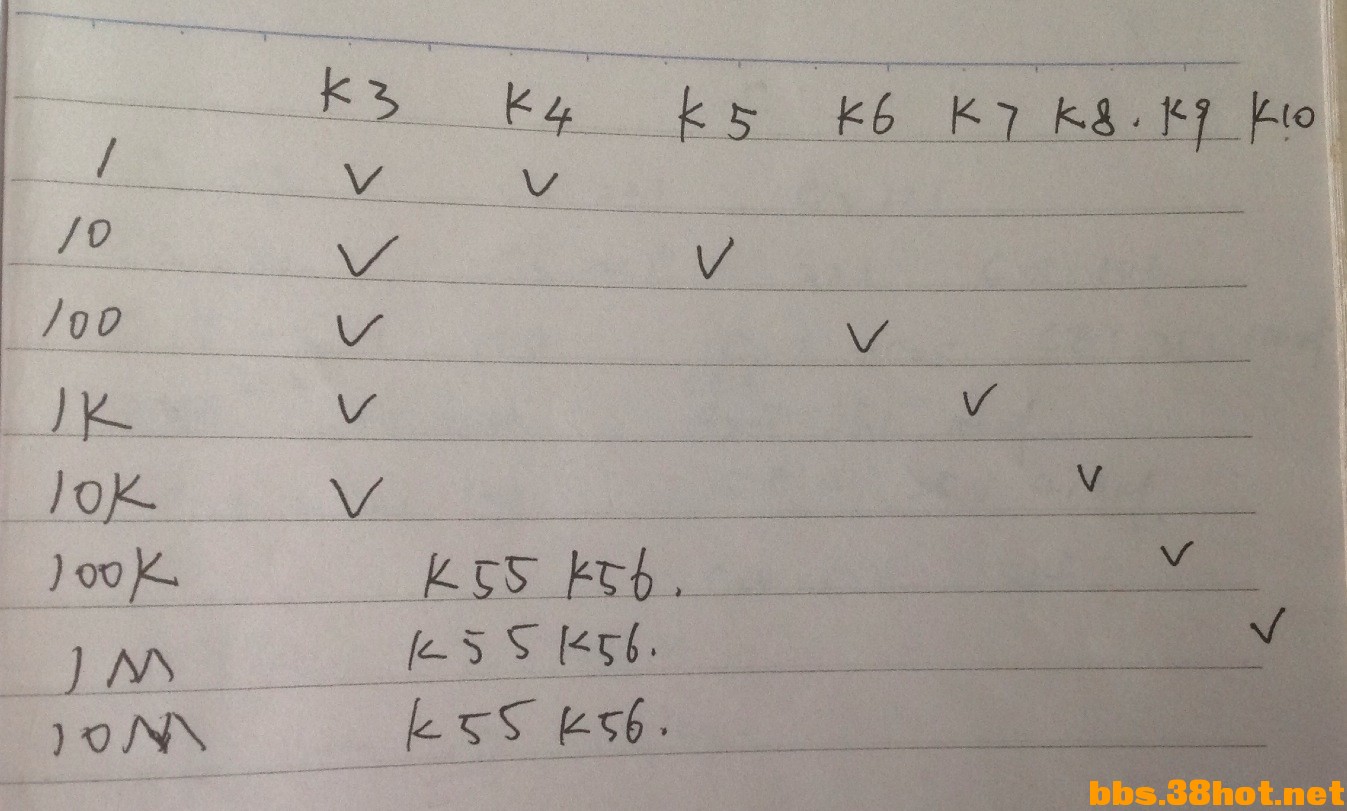 K3 K4 K5 K6 K7 K8. K9 K10
1 √ √
10 √ √
100 √ √
1K √ √
10K √ √
100K K55 K56. √
1M K55 K56. √
10M K55 K56.
bbs.38hot.net